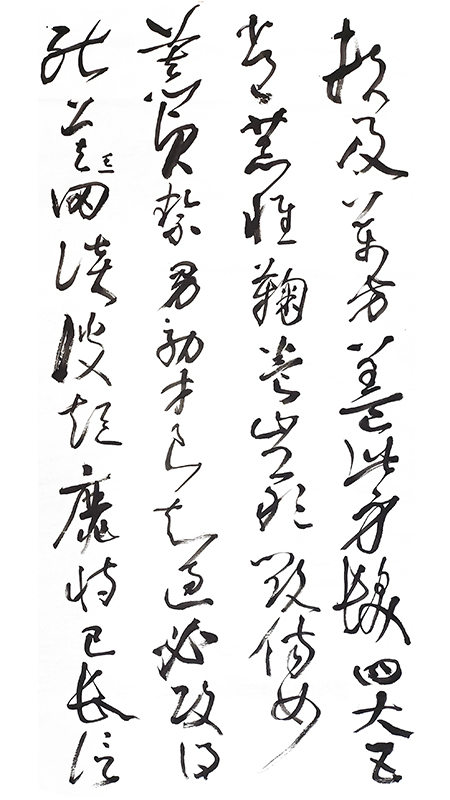 賴及萬方蓋此身髮四大五
常恭惟鞠養豈敢毀傷女
慕貞絜男効才良知過必改得
能莫忘罔談彼短靡恃己長信